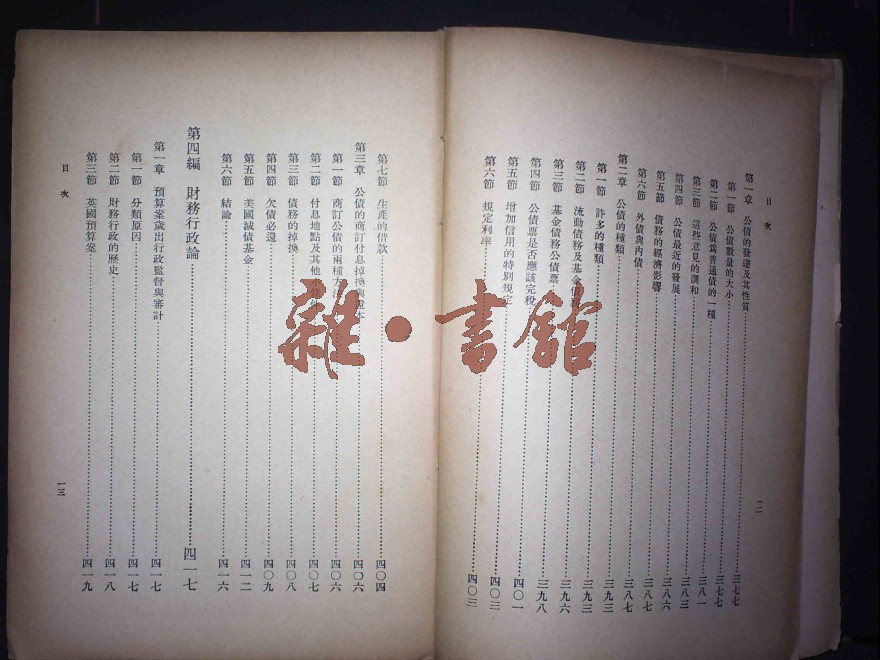 目次
一二
第一章 公債的發達及其性質……三七七
第一節 公債數量的大小……三七七
第二節 公債爲普通債的一種……三八一
第三節 這些意見的調和……三八三
第四節 公債最近的發展……三八六
第五節 債務的經濟影響……三八七
第六節 外債與內債……三八七
第二章 公債的種類……三九三
第一節 許多的種類……三九三
第二節 流動債務及基金債……三九六
第三節 基金債務公債票……三九八
第四節 公債票是否應該完稅……四〇一
第五節 增加信用的特別規定……四〇三
第六節 規定利率……四〇三
第七節 生產的借款……四〇四
第三章 公債的商訂付息掉換與還本……四〇六
第一節 商訂公債的兩種方法……四〇六
第二節 付息地點及其他小……四〇七
第三節 債務的掉換……四〇八
第四節 欠債必還……四〇九
第五節 美國減債基金……四一二
第六節 結論……四一六
第四編 財務行政論……四一七
第一章 預算案歲出行政監督與審計……四一七
第一節 分類原因……四一七
第二節 財務行政的歷史……四一八
第三節 英國預算案……四一九
目次
一三
雜·書館